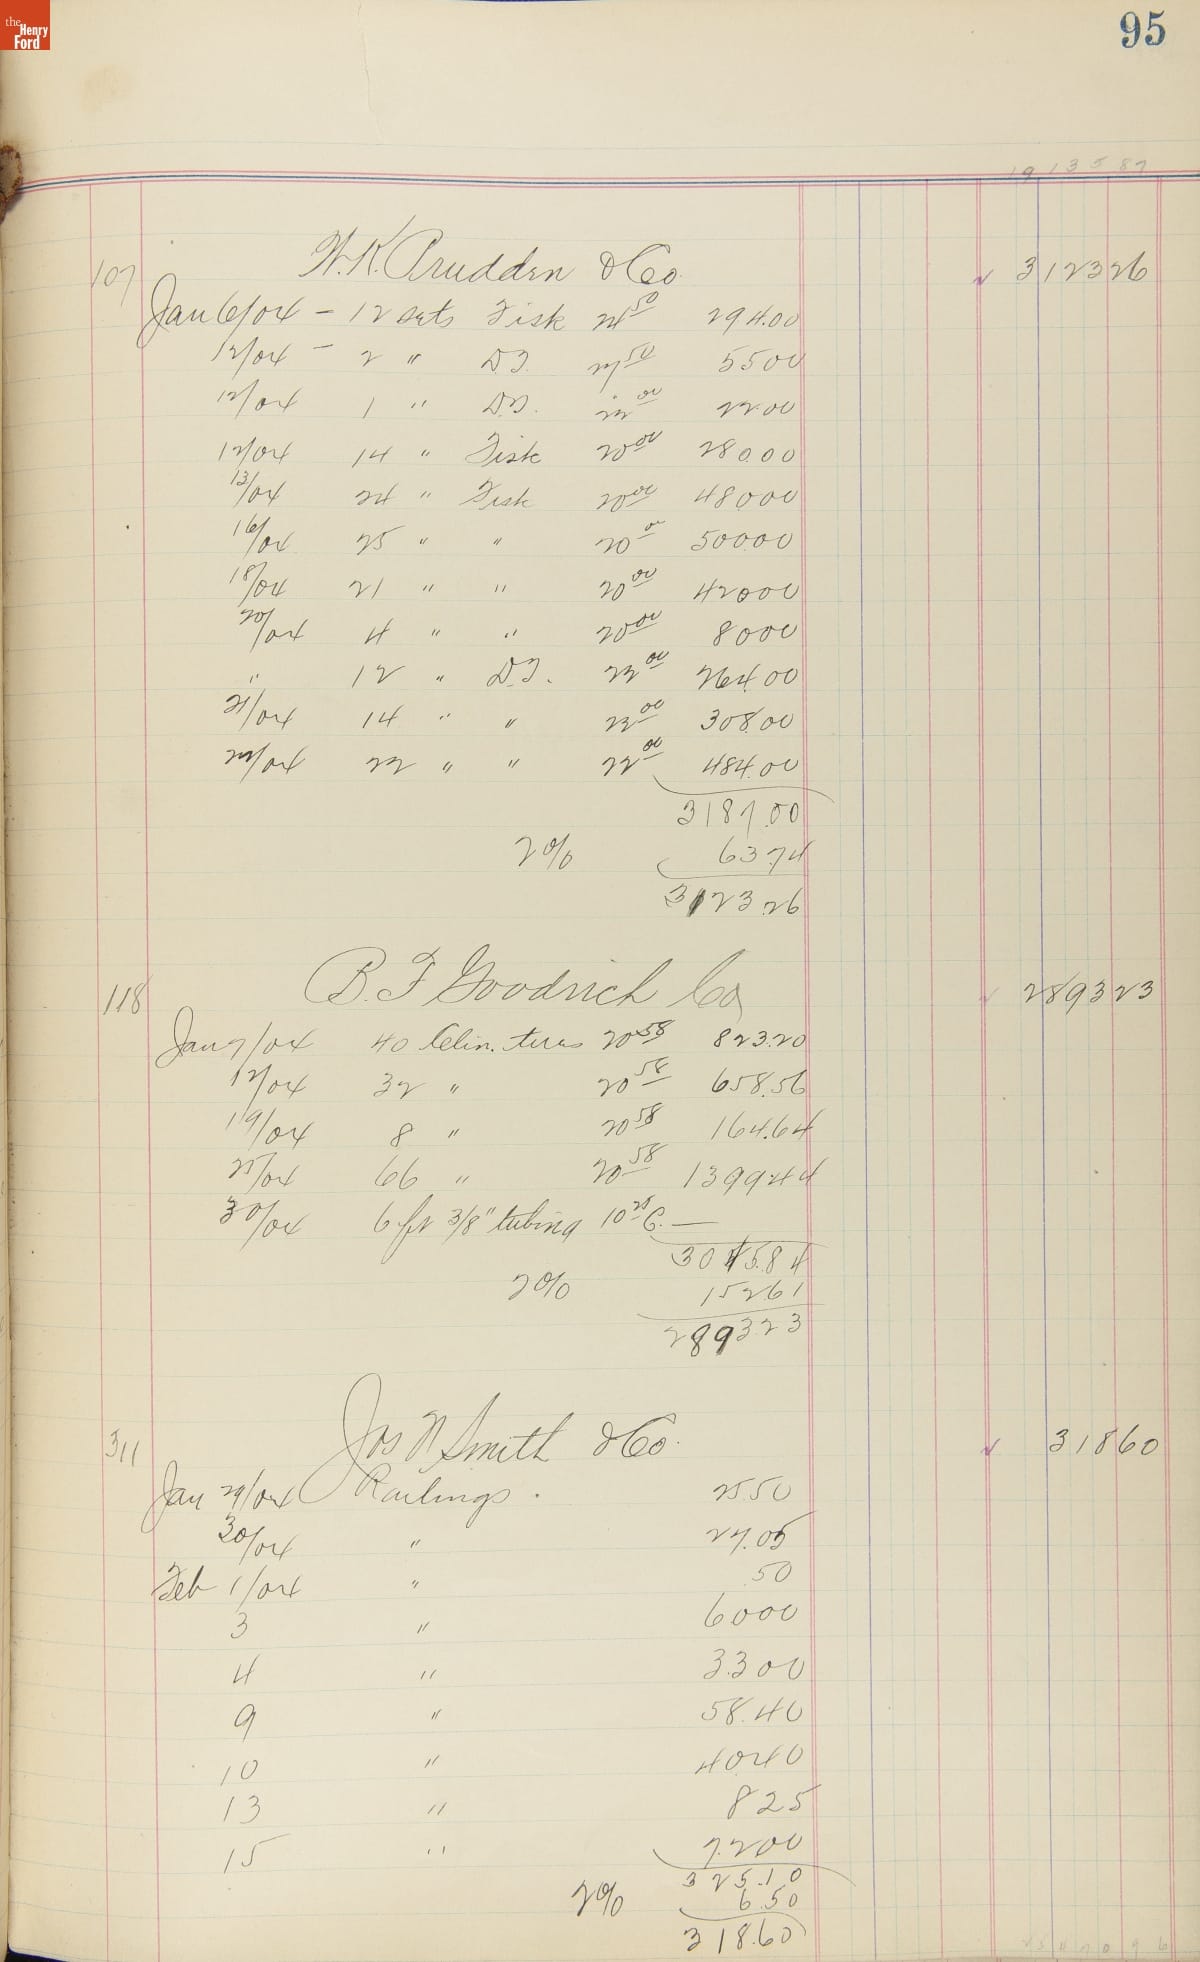 the Henry Ford
95
19 135 87
107 W.K. Prudden & Co. ✓ 3123 26
Jan 6/04 - 12 sets Fisk 24 50 294.00
12/04 - 2 " D.T. 27 50 55 00
12/04 1 " D.T. 22 00 22 00
12/04 14 " Fisk 20 00 280 00
13/04 24 " Fisk 20 00 480 00
16/04 25 " " 20 00 500 00
18/04 21 " " 20 00 420 00
20/04 4 " " 20 00 80 00
" 12 " D.T. 22 00 264.00
21/04 14 " " 22 00 308.00
22/04 22 " " 22 00 484.00
3187.00
2% 63.74
3123.26
118 B.F. Goodrich Co ✓ 2893 23
Jan 7/04 40 Clin. tires 20 58 823.20
12/04 32 " 20 58 658.56
19/04 8 " 20 58 164.64
25/04 66 " 20 58 1399 44
30/04 6 ft 3/8" tubing 10 20 C. —
3045.84
2% 152 61
2893 23
311 Jos N Smith & Co. ✓ 318 60
Jan 29/04 Railings. 25 50
30/04 " 27.05
Feb 1/04 " 50
3 " 60 00
4 " 33 00
9 " 58.40
10 " 40 40
13 " 8 25
15 " 72 00
325.10
2% 6.50
318.60